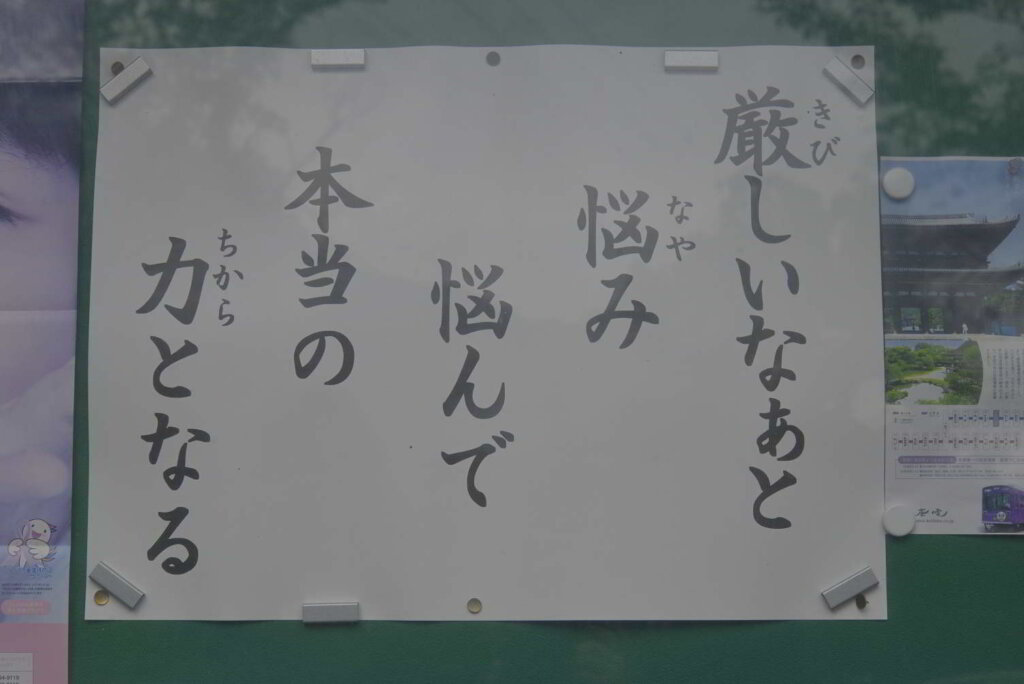 厳しいなぁと
きび
悩み
なや
悩んで
本当の
力となる
ちから